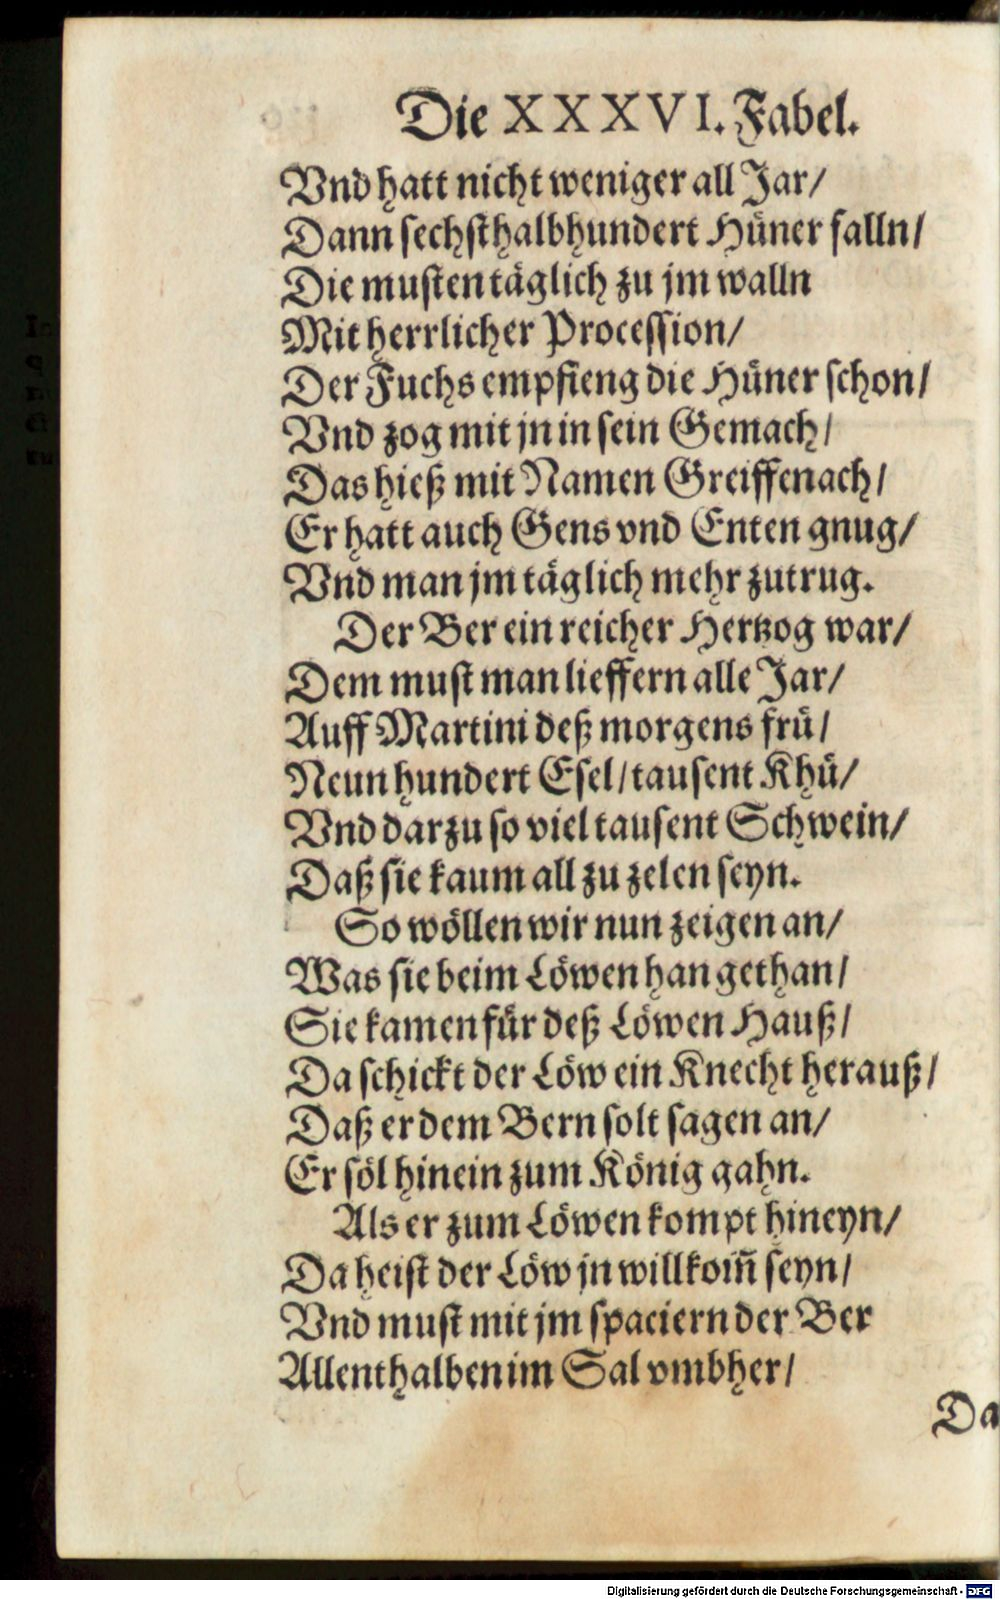 Die XXXVI. Fabel.
Vnd hatt nicht weniger all Jar/
Dann sechsthalbhundert Hüner falln/
Die musten täglich zu jm walln
Mit herrlicher Procession/
Der Fuchs empfieng die Hüner schon/
Vnd zog mit jn in sein Gemach/
Das hieß mit Namen Greiffenach/
Er hatt auch Gens vnd Enten gnug/
Vnd man jm täglich mehr zutrug.
Der Ber ein reicher Hertzog war/
Dem must man lieffern alle Jar/
Auff Martini deß morgens frü/
Neun hundert Esel/ tausent Khü/
Vnd darzu so viel tausent Schwein/
Daß sie kaum all zu zelen seyn.
So wöllen wir nun zeigen an/
Was sie beim Löwen han gethan/
Sie kamen für deß Löwen Hauß/
Da schickt der Löw ein Knecht herauß/
Daß er dem Bern solt sagen an/
Er söl hinein zum König gahn.
Als er zum Löwen kompt hineyn/
Da heist der Löw jn willkom̃ seyn/
Vnd must mit jm spaciern der Ber
Allenthalben im Sal vmbher/
Da
Digitalisierung gefördert durch die Deutsche Forschungsgemeinschaft - DFG